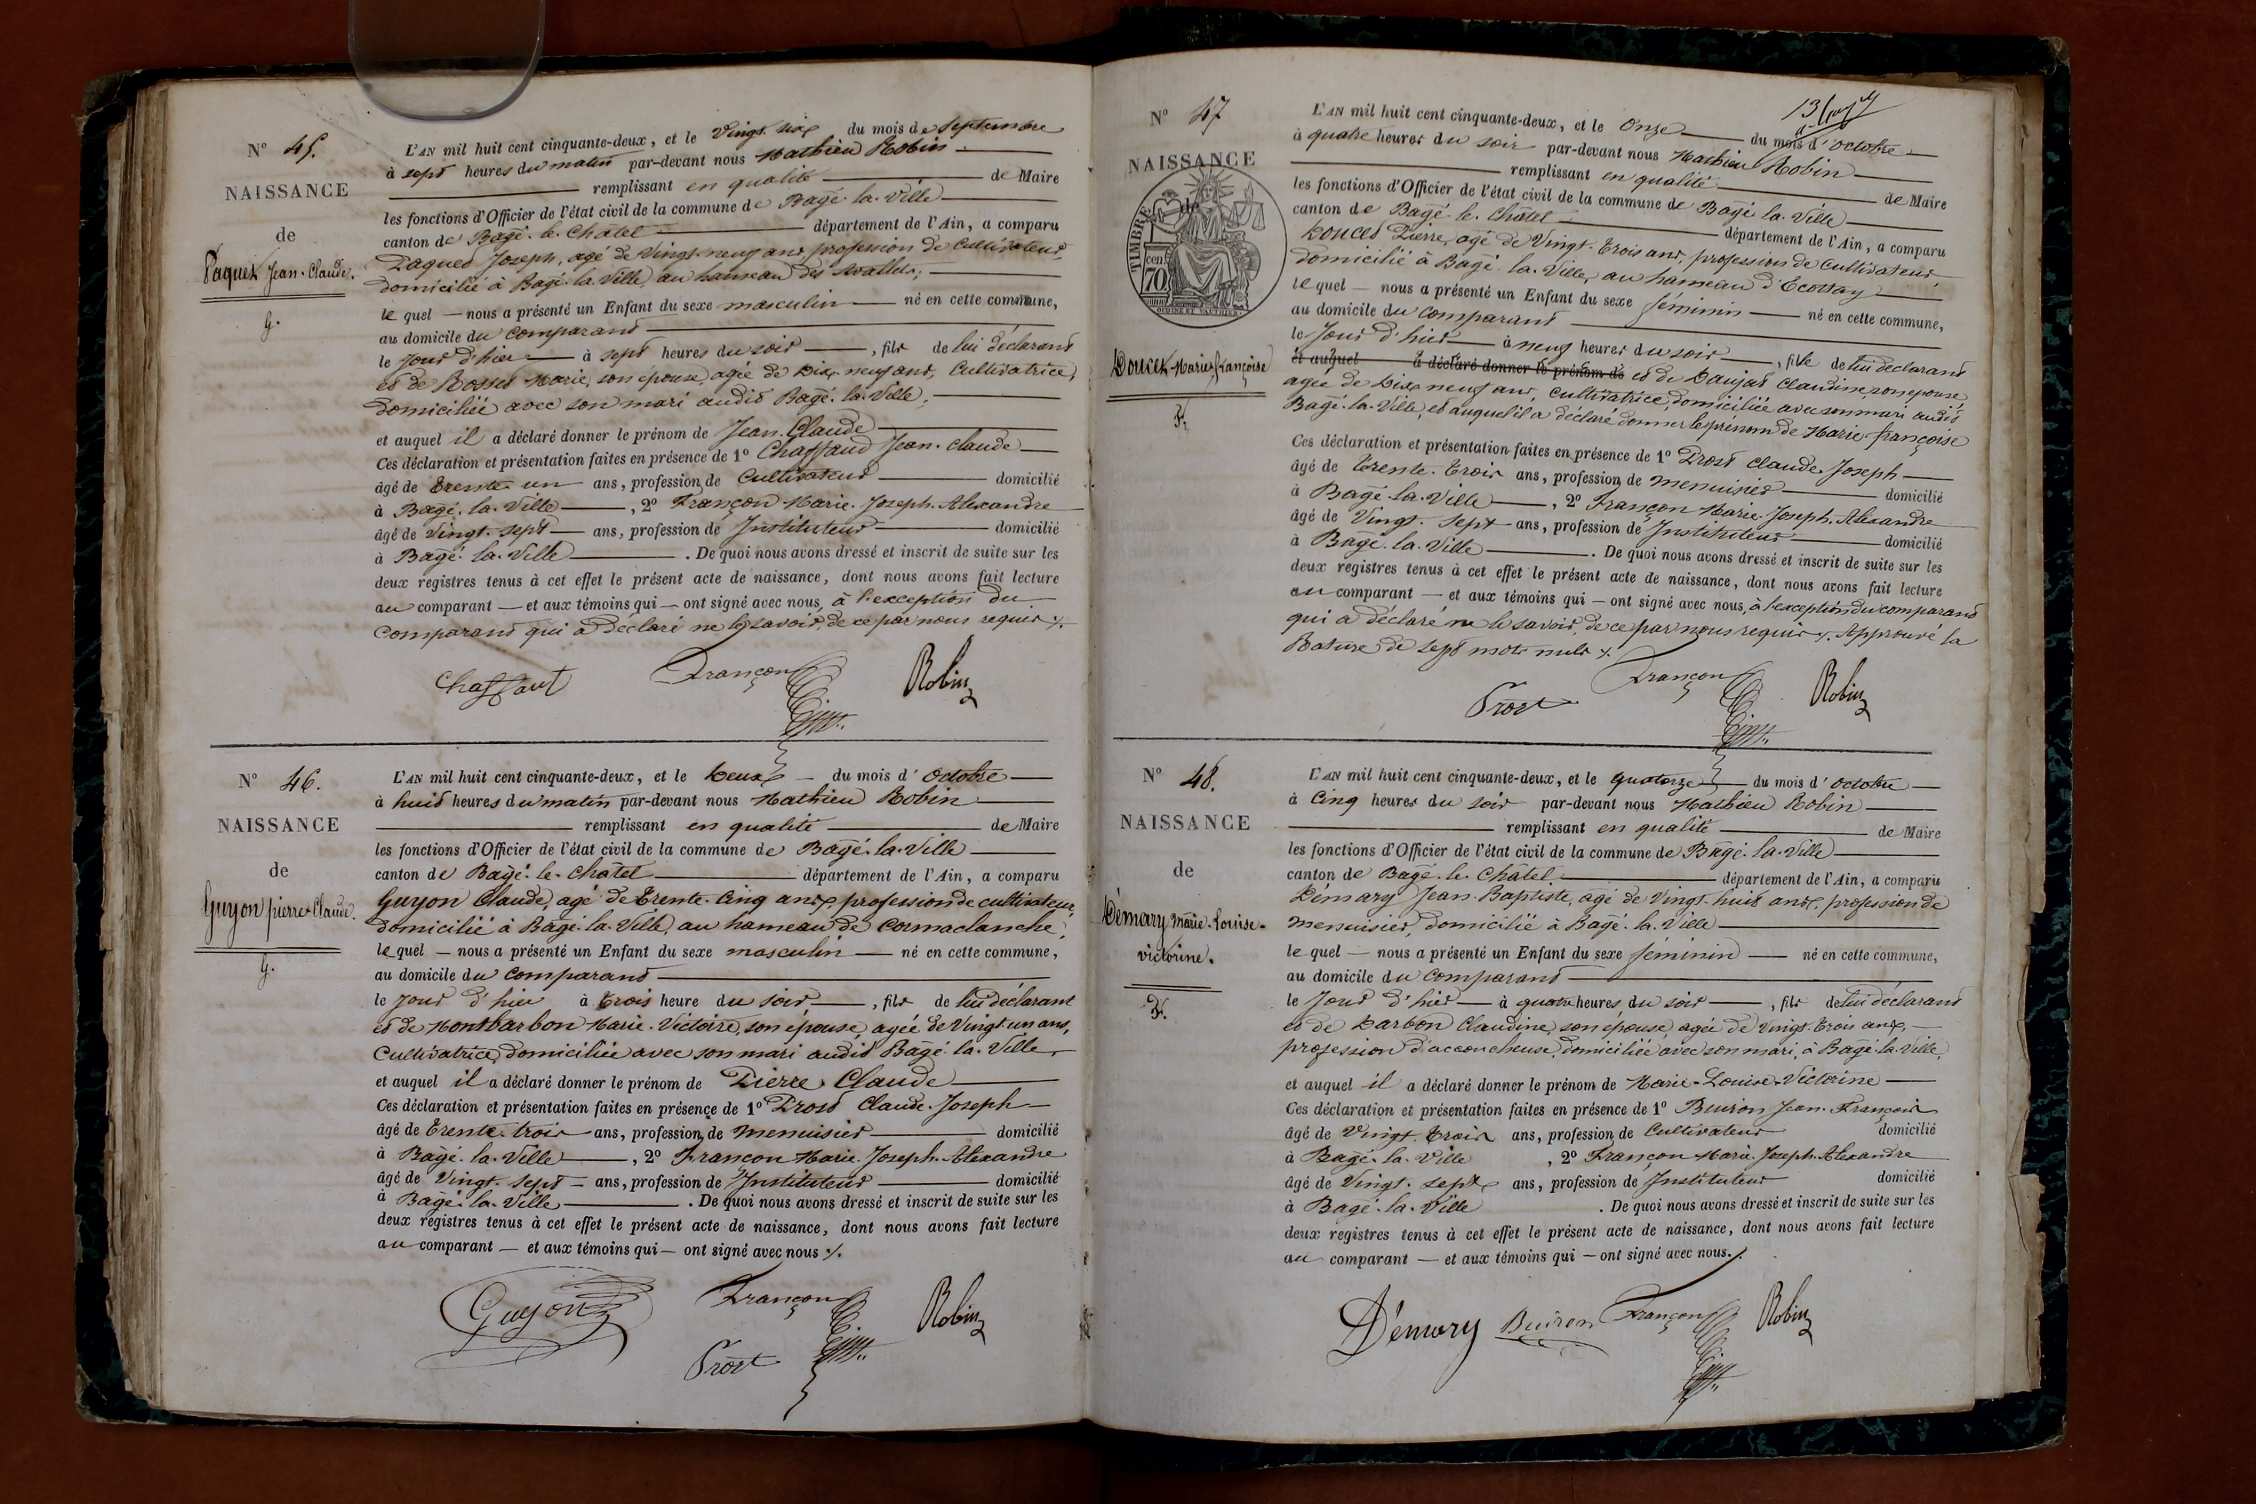 N° 45.
NAISSANCE
de
Paquet Jean-Claude.
G.
L'AN mil huit cent cinquante-deux, et le Vingt six du mois de Septembre
à sept heures du matin par-devant nous Mathieu Robin
remplissant en qualité de Maire
les fonctions d'Officier de l'état civil de la commune de Bagé-la-Ville
canton de Bagé-le-Châtel département de l'Ain, a comparu
Paquet Joseph, agé de Vingt-neuf ans, profession de Cultivateur,
domicilié à Bagé-la-Ville, au hameau des
le quel — nous a présenté un Enfant du sexe masculin — né en cette commune,
au domicile du Comparant
le Jour d'hier à sept heures du soir, fils de lui déclarant
et de Rosset Marie, son épouse, agée de Dix neuf ans, Cultivatrice,
domiciliée avec son mari audit Bagé-la-Ville,
et auquel il a déclaré donner le prénom de Jean-Claude
Ces déclaration et présentation faites en présence de 1° Chaffaud Jean-Claude
âgé de Trente un ans, profession de Cultivateur domicilié
à Bagé-la-Ville, 2° Françon Marie-Joseph-Alexandre
âgé de Vingt-sept ans, profession de Instituteur domicilié
à Bagé-la-Ville. De quoi nous avons dressé et inscrit de suite sur les
deux registres tenus à cet effet le présent acte de naissance, dont nous avons fait lecture
au comparant — et aux témoins qui — ont signé avec nous, à l'exception du
Comparant qui a déclaré ne le savoir, de ce par nous requis ./.
Chaffaut Françon Robin
N° 46.
NAISSANCE
de
Guyon pierre Claude.
G.
L'AN mil huit cent cinquante-deux, et le Deux — du mois d'Octobre
à huit heures du matin par-devant nous Mathieu Robin
remplissant en qualité de Maire
les fonctions d'Officier de l'état civil de la commune de Bagé-la-Ville
canton de Bagé-le-Châtel département de l'Ain, a comparu
Guyon Claude, agé de Trente-Cinq ans, profession de cultivateur,
domicilié à Bagé-la-Ville, au hameau de Cormaclanche,
le quel — nous a présenté un Enfant du sexe masculin — né en cette commune,
au domicile du Comparant
le Jour d'hier à Trois heure du soir, fils de lui déclarant
et de Montbarbon Marie-Victoire, son épouse, agée de Vingt-un ans,
Cultivatrice, domiciliée avec son mari audit Bagé-la-Ville,
et auquel il a déclaré donner le prénom de Pierre Claude
Ces déclaration et présentation faites en présence de 1° Prost Claude-Joseph
âgé de Trente-trois ans, profession de Menuisier domicilié
à Bagé-la-Ville, 2° Françon Marie-Joseph-Alexandre
âgé de Vingt-sept ans, profession de Instituteur domicilié
à Bagé-la-Ville. De quoi nous avons dressé et inscrit de suite sur les
deux registres tenus à cet effet le présent acte de naissance, dont nous avons fait lecture
au comparant — et aux témoins qui — ont signé avec nous ./.
Guyon Françon Robin
Prost
N° 47
NAISSANCE
de
TIMBRE
70 cen
Doucet Marie françoise
F.
L'AN mil huit cent cinquante-deux, et le Onze du mois d'Octobre
à quatre heures du soir par-devant nous Mathieu Robin
remplissant en qualité de Maire
les fonctions d'Officier de l'état civil de la commune de Bagé-la-Ville
canton de Bagé-le-Châtel département de l'Ain, a comparu
Doucet Pierre, agé de Vingt-Trois ans, profession de Cultivateur,
domicilié à Bagé-la-Ville, au hameau d'Ecossay
le quel — nous a présenté un Enfant du sexe féminin — né en cette commune,
au domicile du Comparant
le Jour d'hier à neuf heures du soir, fille de lui déclarant
et auquel a déclaré donner le prénom de et de Daujat Claudine son épouse,
agée de Dix neuf ans, cultivatrice, domiciliée avec son mari audit
Bagé-la-Ville, et auquel il a déclaré donner le prénom de Marie-françoise
Ces déclaration et présentation faites en présence de 1° Prost Claude-Joseph
âgé de Trente-Trois ans, profession de Menuisier domicilié
à Bagé-la-Ville, 2° Françon Marie-Joseph-Alexandre
âgé de Vingt-sept ans, profession de Instituteur domicilié
à Bagé-la-Ville. De quoi nous avons dressé et inscrit de suite sur les
deux registres tenus à cet effet le présent acte de naissance, dont nous avons fait lecture
au comparant — et aux témoins qui — ont signé avec nous, à l'exception du comparant
qui a déclaré ne le savoir, de ce par nous requis ./. Approuvé la
Rature de sept mots nuls ./.
Prost Françon Robin
N° 48.
NAISSANCE
de
Démary Marie-Louise-
victorine.
F.
L'AN mil huit cent cinquante-deux, et le quatorze du mois d'Octobre
à Cinq heures du soir par-devant nous Mathieu Robin
remplissant en qualité de Maire
les fonctions d'Officier de l'état civil de la commune de Bagé-la-Ville
canton de Bagé-le-Châtel département de l'Ain, a comparu
Démary Jean-Baptiste, agé de Vingt-huit ans, profession de
menuisier, domicilié à Bagé-la-Ville
le quel — nous a présenté un Enfant du sexe féminin — né en cette commune,
au domicile du Comparant
le Jour d'hier à quatre heures du soir, fils de lui déclarant
et de Darbon Claudine, son épouse, agée de vingt-Trois ans,
profession d'accoucheuse, domiciliée avec son mari, à Bagé-la-Ville,
et auquel il a déclaré donner le prénom de Marie-Louise-Victorine
Ces déclaration et présentation faites en présence de 1° Buiron Jean-François
âgé de Vingt-Trois ans, profession de Cultivateur domicilié
à Bagé-la-Ville, 2° Françon Marie-Joseph-Alexandre
âgé de Vingt-sept ans, profession de Instituteur domicilié
à Bagé-la-Ville. De quoi nous avons dressé et inscrit de suite sur les
deux registres tenus à cet effet le présent acte de naissance, dont nous avons fait lecture
au comparant — et aux témoins qui — ont signé avec nous./.
Démary Buiron Françon Robin